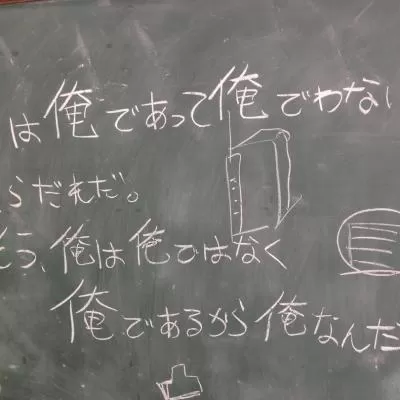 は俺であって俺でわない
らだれだ。
そう、俺は俺ではなく
俺であるから俺なんだ